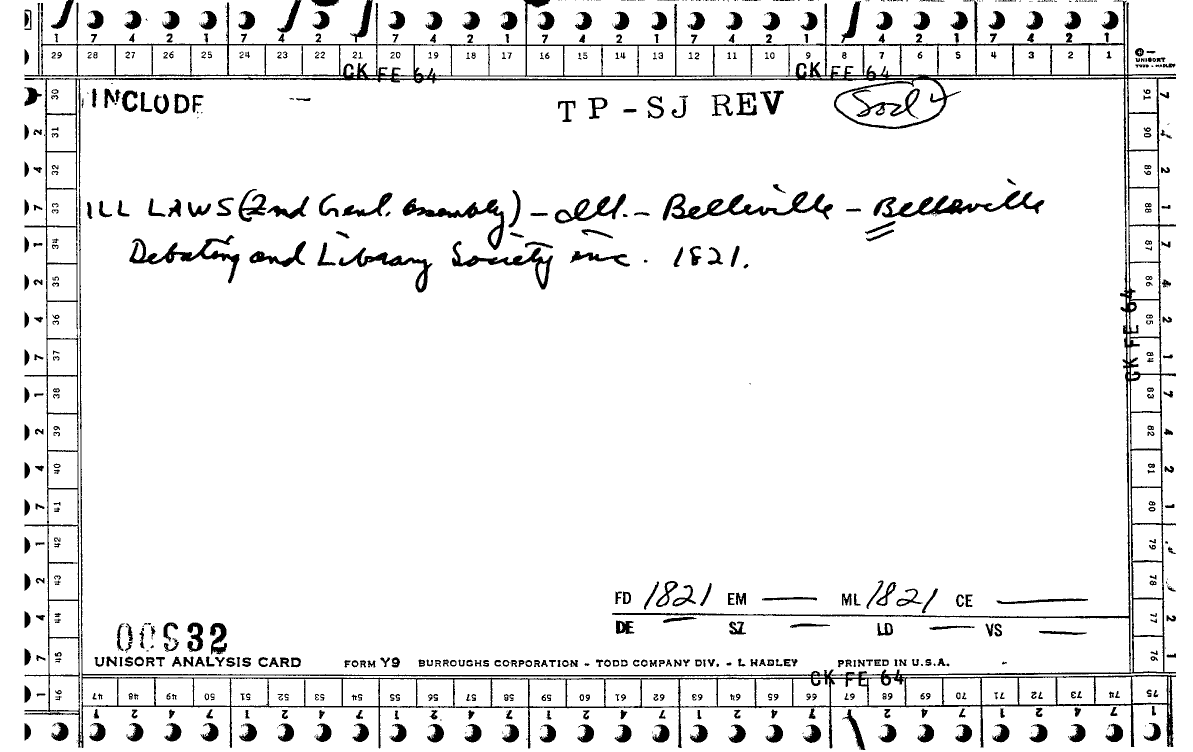 1 7 4 2 1 7 4 2 1 7 4 2 1 7 4 2 1 7 4 2 1 7 4 2 1 7 4 2 1
29 28 27 26 25 24 23 22 21 20 19 18 17 16 15 14 13 12 11 10 9 8 7 6 5 4 3 2 1
UNISORT
TODD - HADLEY
CK FE 64 CK FE 64
INCLUDE — TP-SJ REV Sod
ILL LAWS (2nd Genl. Assembly) - Ill. - Belleville - Belleville
Debating and Library Society inc. 1821.
CK FE 64
FD 1821 EM — ML 1821 CE —
DE — SZ — LD — VS —
UNISORT ANALYSIS CARD FORM Y9 BURROUGHS CORPORATION - TODD COMPANY DIV. - L HADLEY PRINTED IN U.S.A.
CK FE 64
30 31 32 33 34 35 36 37 38 39 40 41 42 43 44 45 46
91 90 89 88 87 86 85 84 83 82 81 80 79 78 77 76 75
47 48 49 50 51 52 53 54 55 56 57 58 59 60 61 62 63 64 65 66 67 68 69 70 71 72 73 74 75